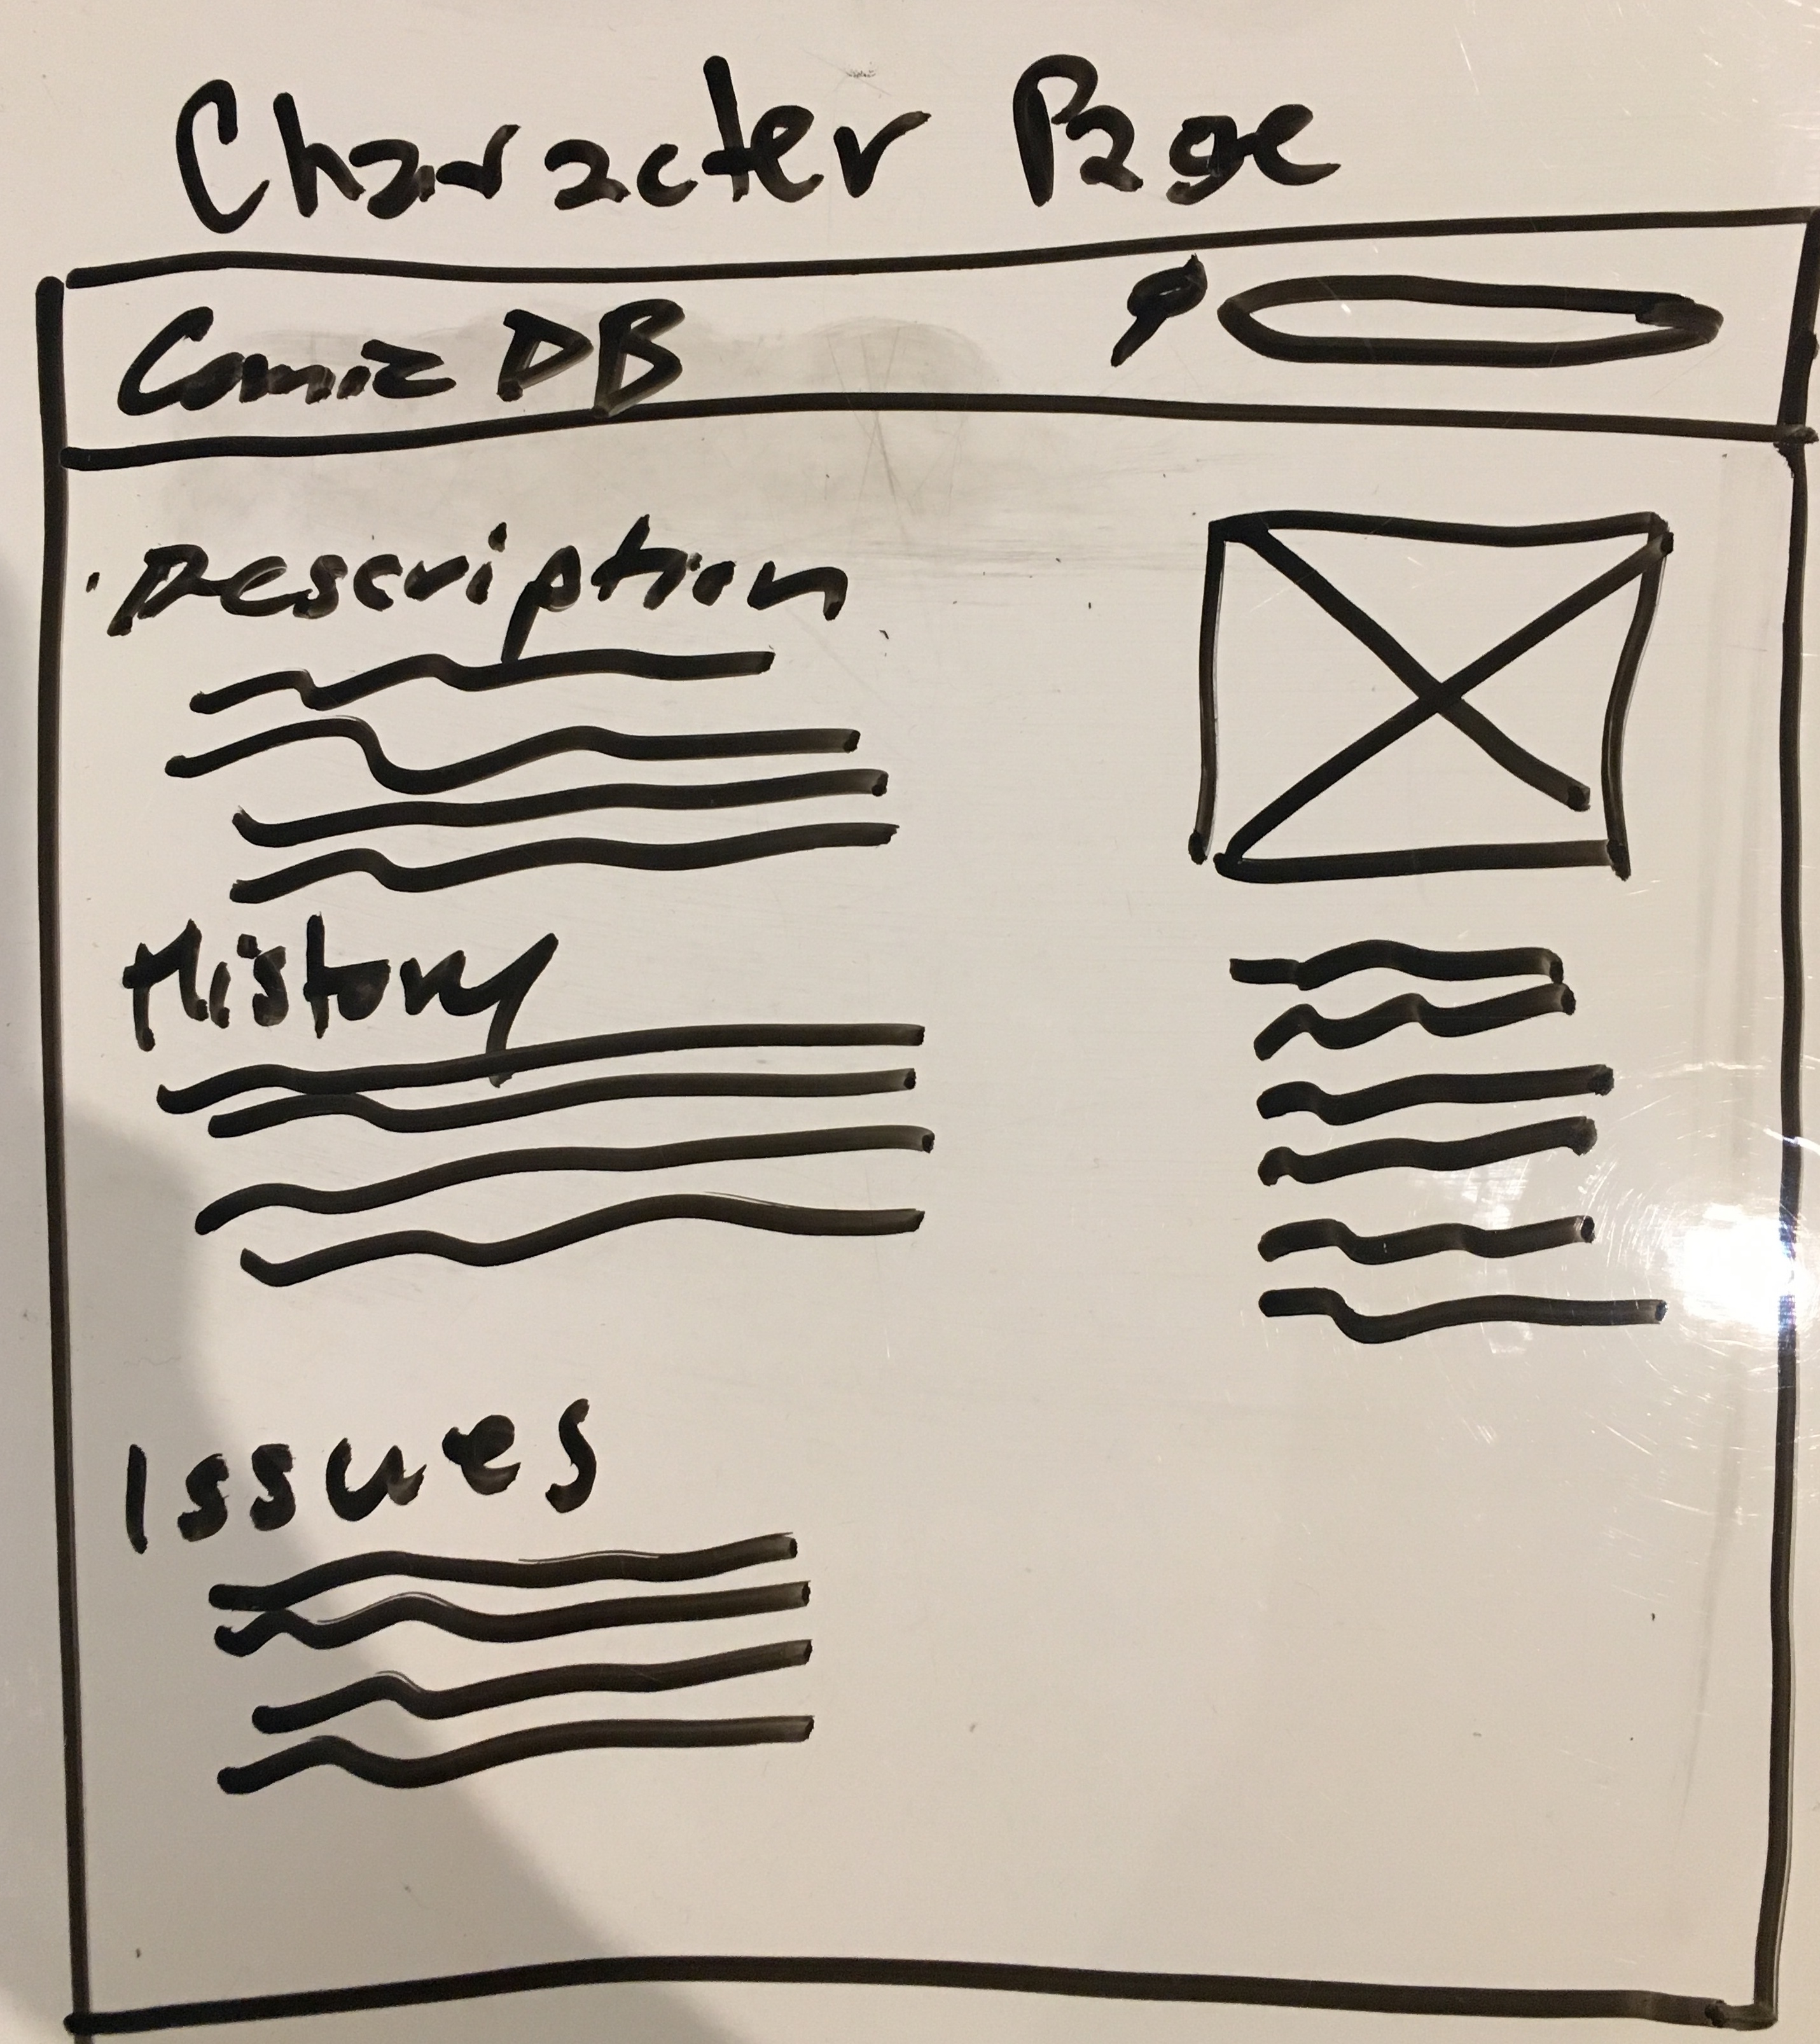 Character Page
Comic DB
Description
History
Issues